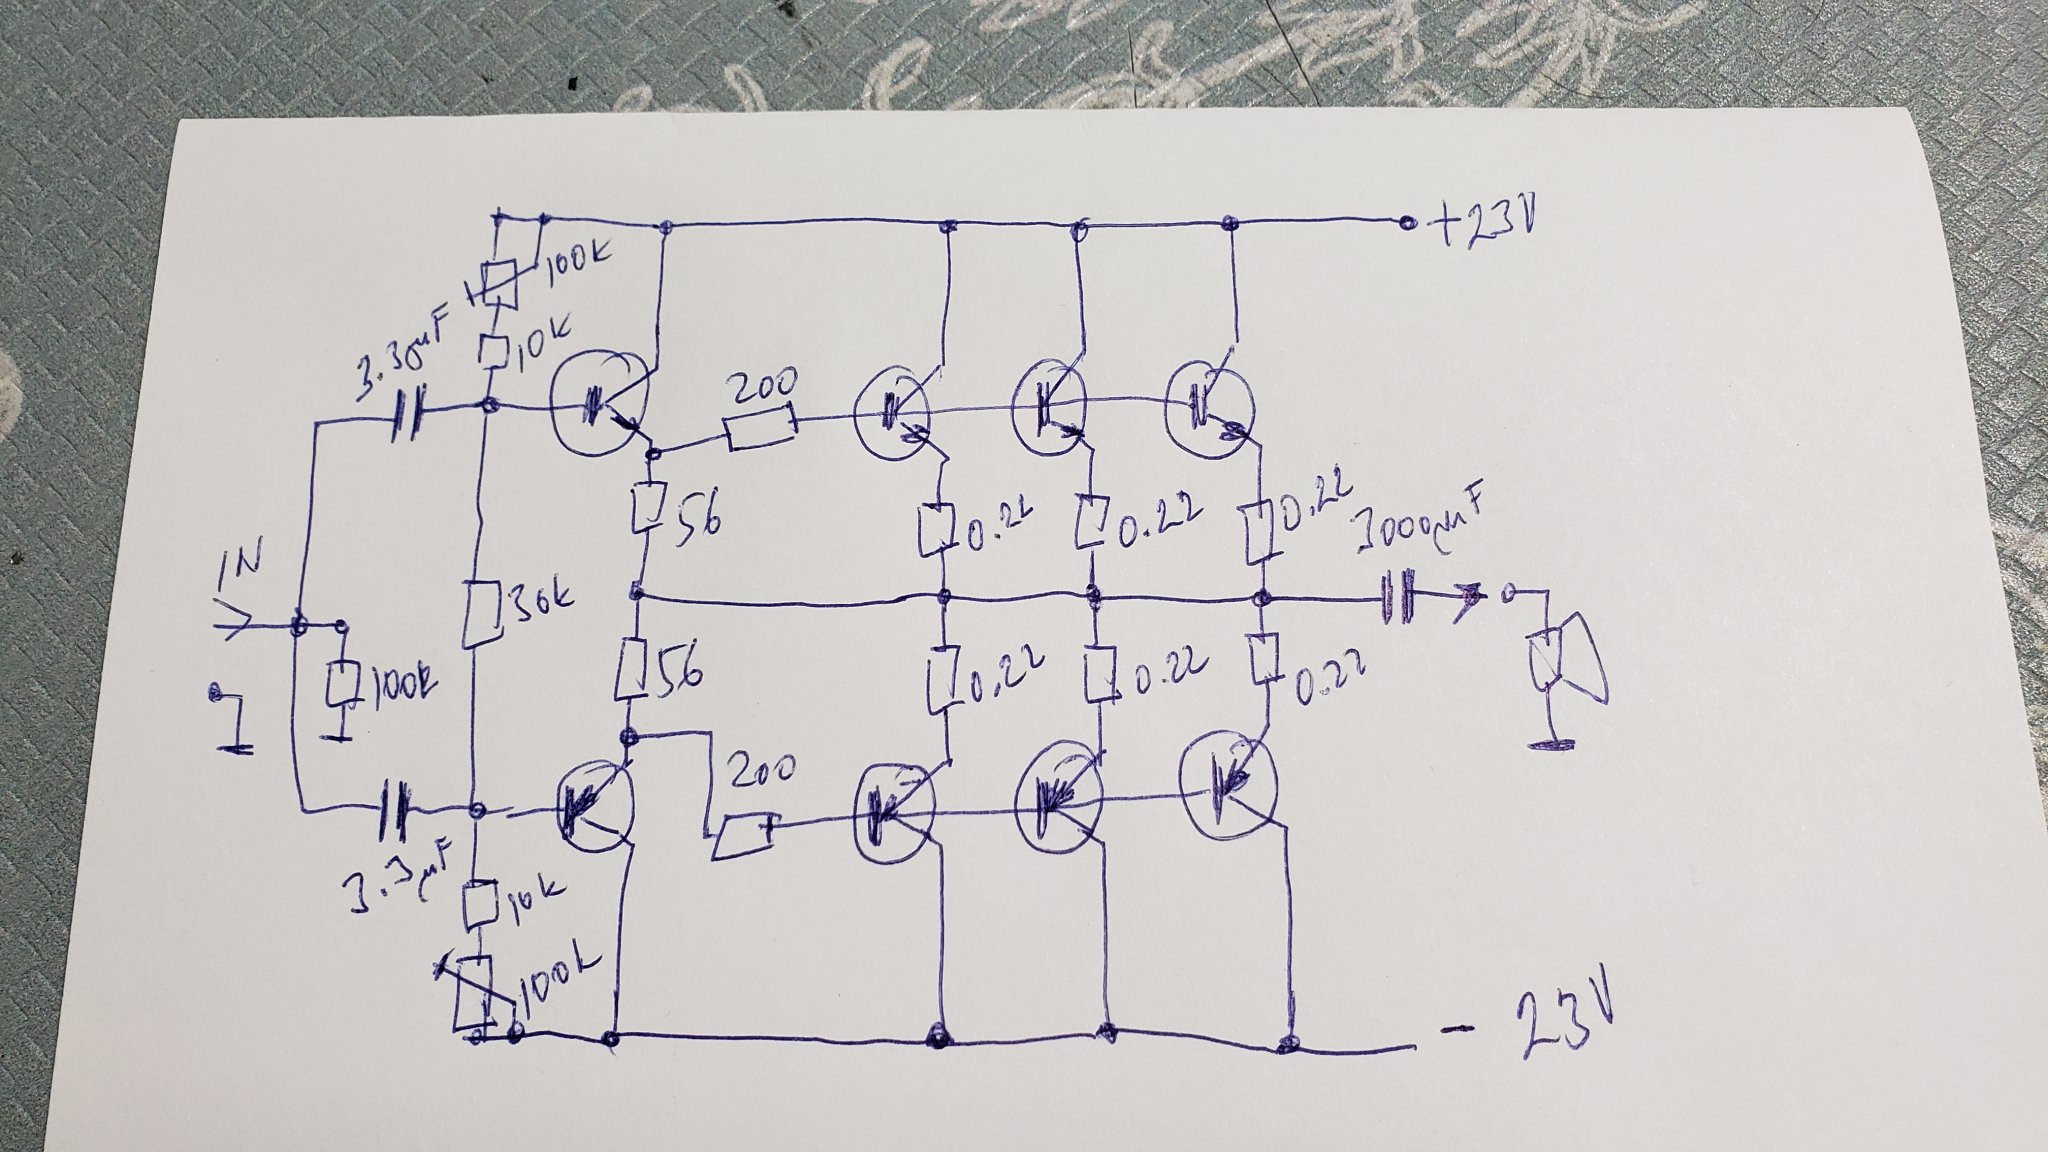 +23V
100k
3.30µF
10k
200
56
0.22
0.22
0.22
3000µF
IN
30k
100k
56
0.22
0.22
0.22
200
3.3µF
10k
100k
- 23V